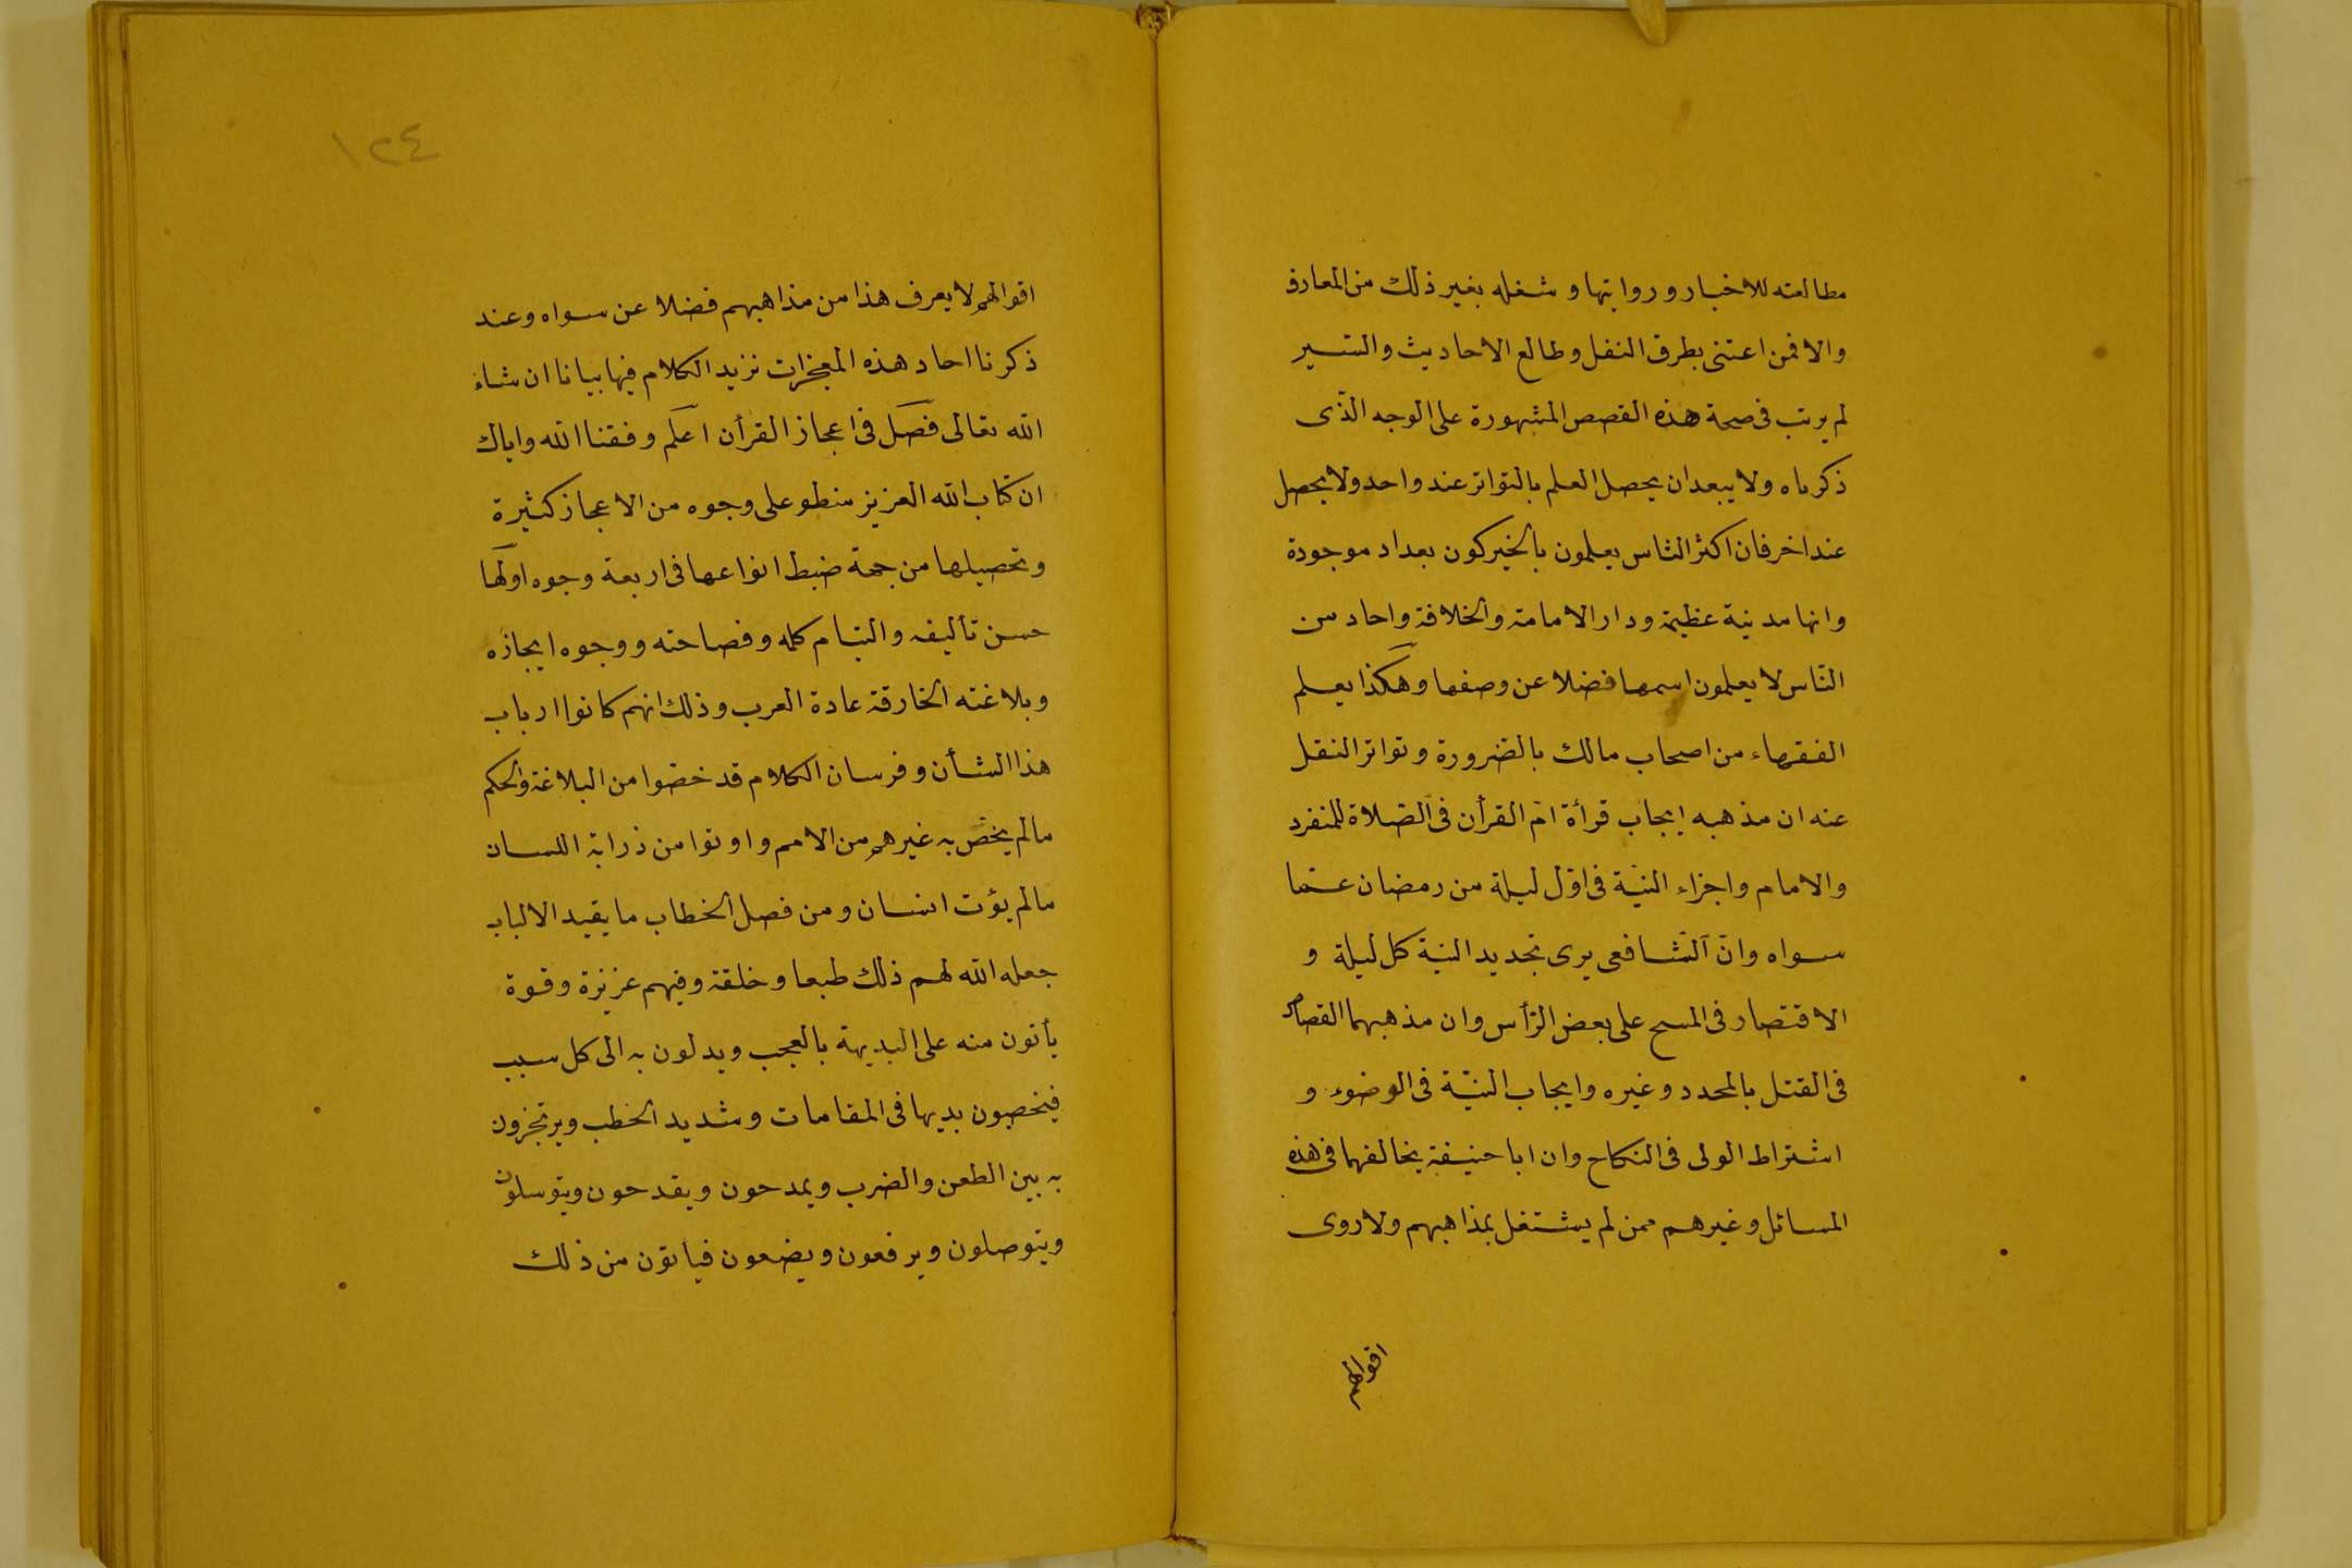 مطالعته للاخبار وروايتها وشغله بغير ذلك من المعارف
والا فمن اعتنى بطرق النقل وطالع الاحاديث والسّير
لم يرتب فى صحة هذه القصص المشهورة على الوجه الّذى
ذكرناه ولا يبعد ان يحصل العلم بالتواتر عند واحد ولا يحصل
عند اخر فان اكثر النّاس يعلمون بالخبر كون بغداد موجودة
وانها مدينة عظيمة ودار الامامة والخلافة واحاد من
النّاس لا يعلمون اسمها فضلا عن وصفها وهكذا يعلم
الفقهاء من اصحاب مالك بالضرورة وتواتر النقل
عنه ان مذهبه ايجاب قرأة امّ القرأن فى الصّلاة للمنفرد
والامام واجزاء النيّة فى اوّل ليلة من رمضان عمّا
سواه وانّ الشّافعى يرى تجديد النية كل ليلة و
الاقتصار فى المسح على بعض الرّأس وان مذهبهما القصاص
فى القتل بالمحدد وغيره وايجاب النيّة فى الوضوء و
اشتراط الولى فى النكاح وان ابا حنيفة يخالفهما فى هذه
المسائل وغيرهم ممن لم يشتغل بمذاهبهم ولا روى
اقوالهم
١٢٤
اقوالهم لا يعرف هذا من مذاهبهم فضلا عن سواه وعند
ذكرنا احاد هذه المعجزات نزيد الكلام فيها بيانا ان شاء
الله تعالى فصل فى اعجاز القرأن اعلم وفقنا الله واياك
ان كتاب الله العزيز منطو على وجوه من الاعجاز كثيرة
وتحصيلها من جهة ضبط انواعها فى اربعة وجوه اولها
حسن تأليفه والتيام كلمه وفصاحته ووجوه ايجازه
وبلاغته الخارقة عادة العرب وذلك انهم كانوا ارباب
هذا الشأن وفرسان الكلام قد خصّوا من البلاغة والحكم
مالم يخصّ به غيرهم من الامم واوتوا من ذرابة اللسان
مالم يؤت انسان ومن فصل الخطاب ما يقيد الالباب
جعل الله لهم ذلك طبعا وخلقة وفيهم غريزة وقوة
يأتون منه على البديهة بالعجب ويدلون به الى كل سبب
فيخصبون بديها فى المقامات وشديد الخطب ويرتجزون
به بين الطعن والضرب ويمدحون ويقدحون ويتوسلون
ويتوصلون ويرفعون ويضعون فيأتون من ذلك